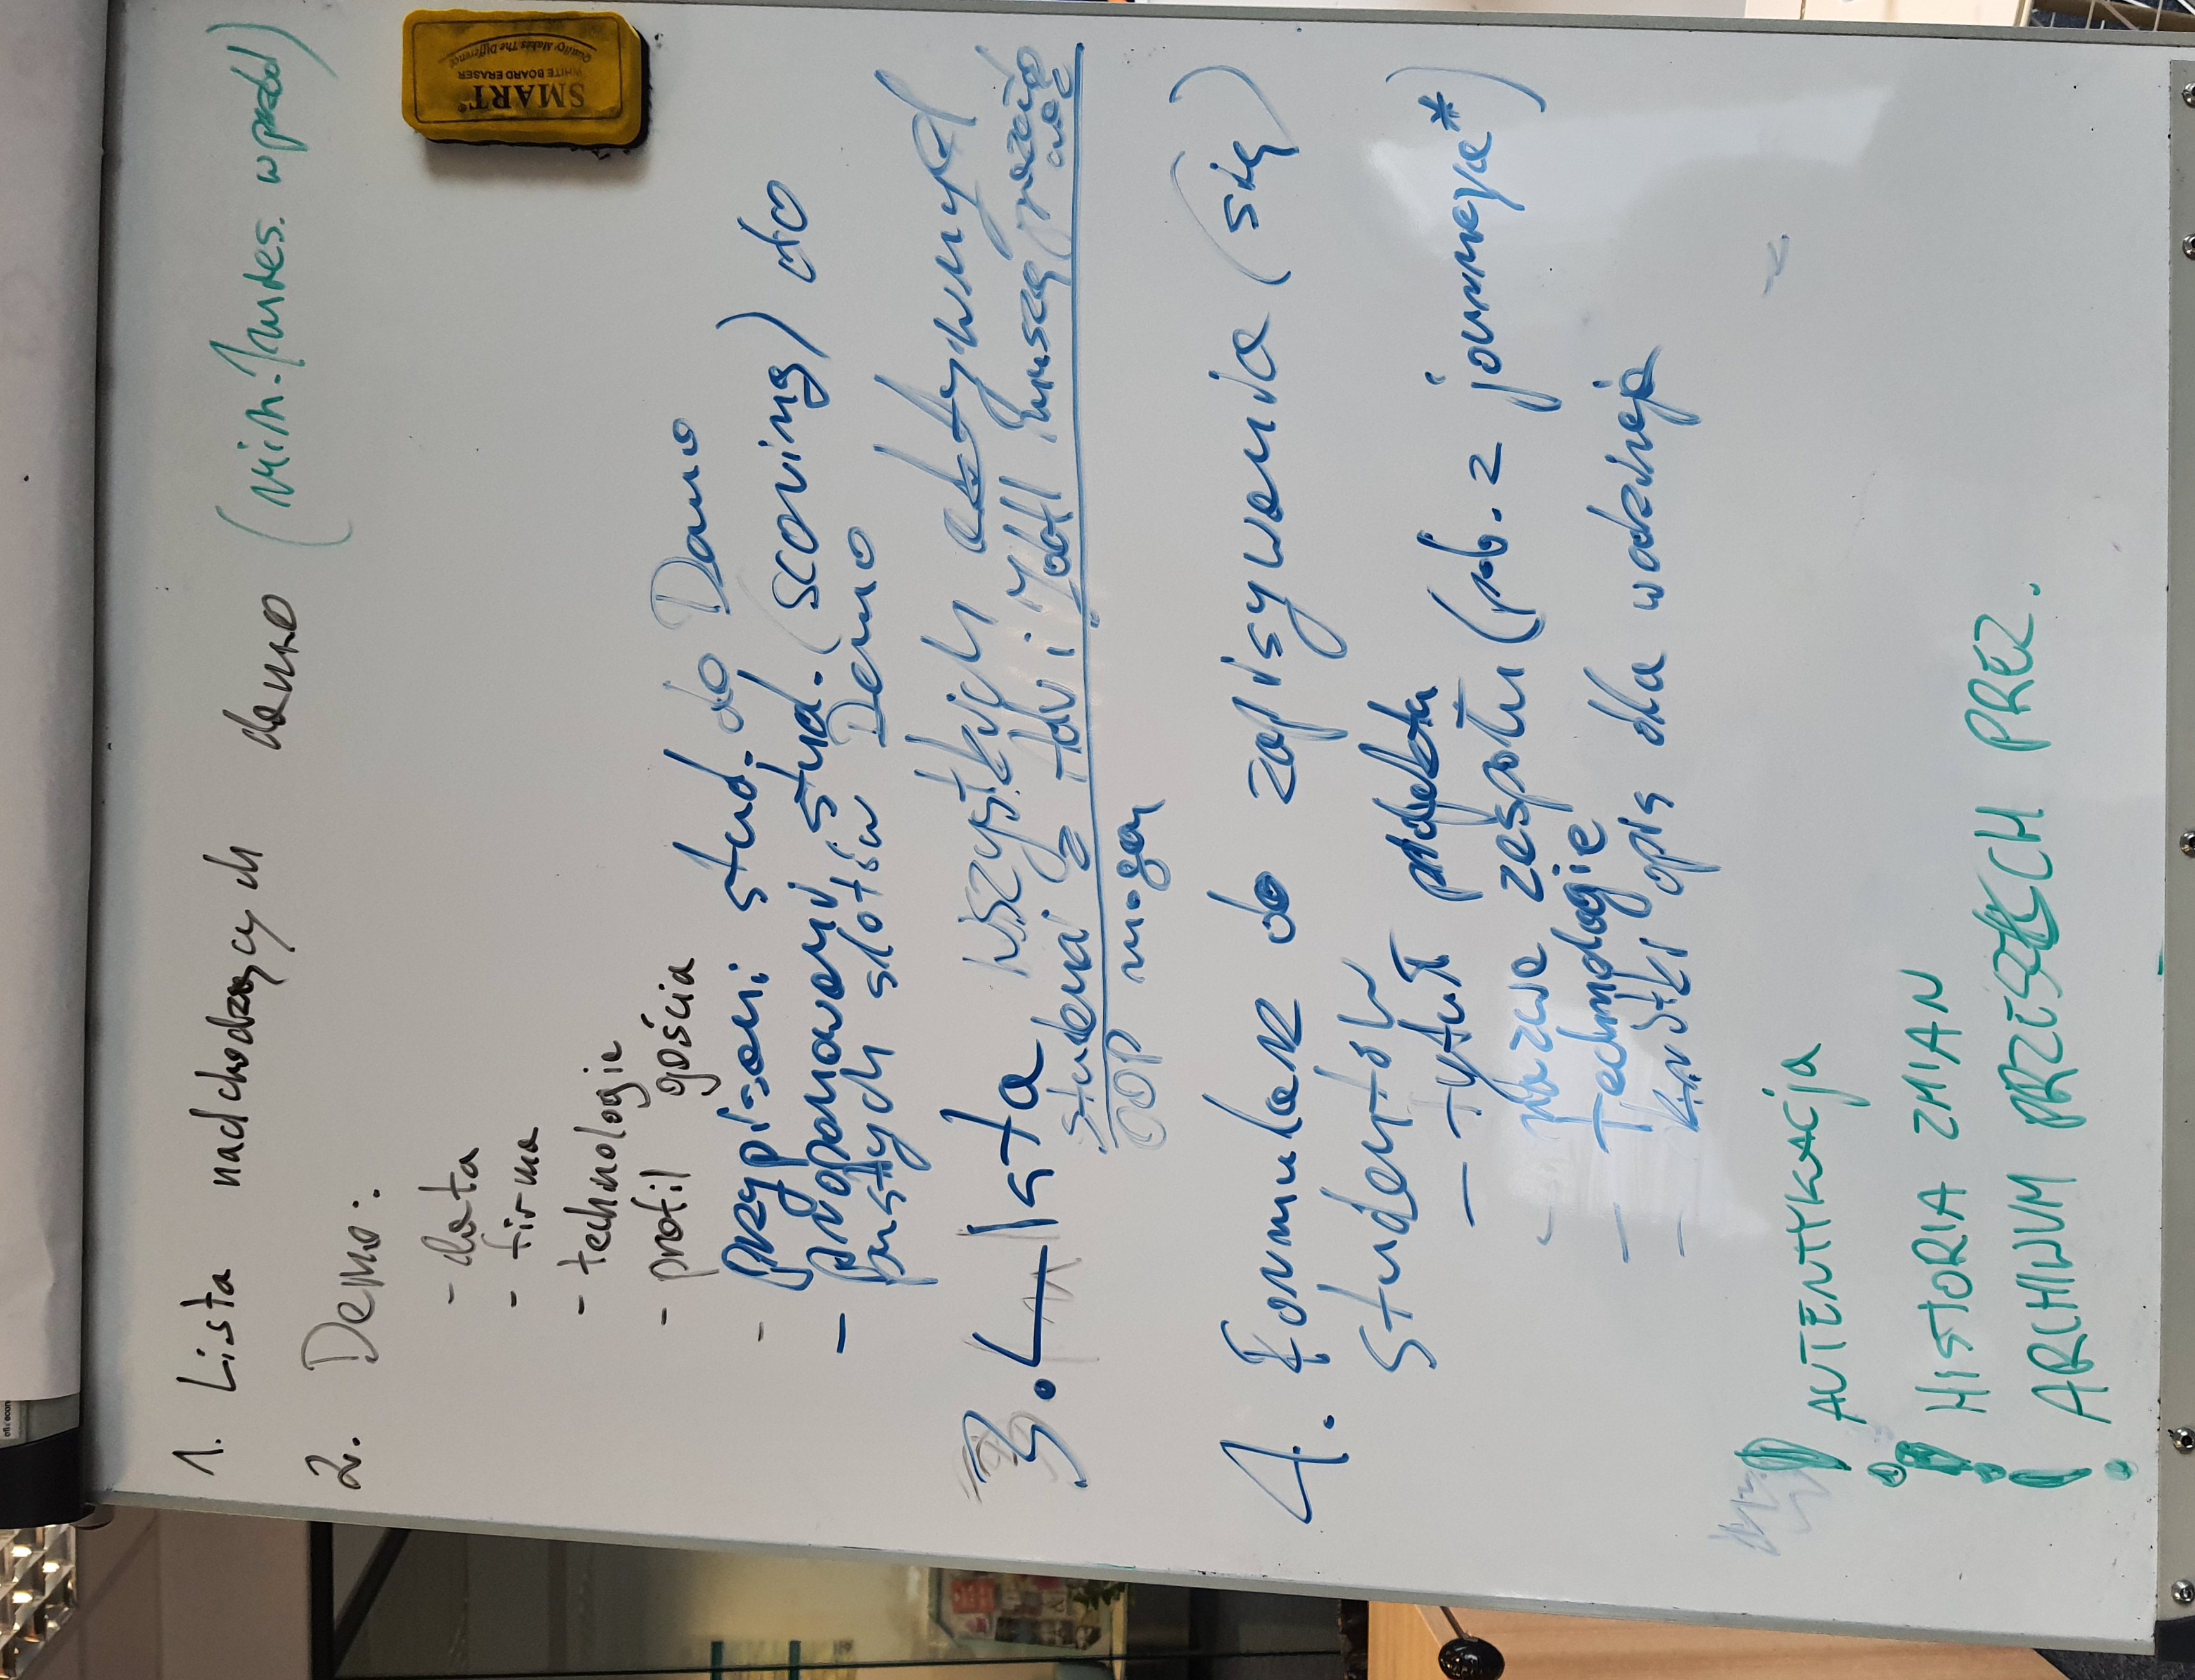 1. Lista nadchodzących demo (min. 1 mies. wprzód)
2. Demo:
- data
- firma
- technologie
- profil gościa
- przypisani stud. do Demo
- proponowani stud. (scoring) do
pustych slotów Demo
3. Lista wszystkich aktywnych
studenci z Adv i muszą
OOP mogą
4. Formularz do zapisywania (się)
studentów
- tytuł projektu
- nazwa zespołu (pob. z journeya*)
- Technologie
- krótki opis dla wodzireja
! AUTENTYKACja
! HISTORIA ZMIAN
! ARCHIWUM PRZESZŁYCH PREZ.
SMART
WHITE BOARD ERASER
Quality Makes The Difference